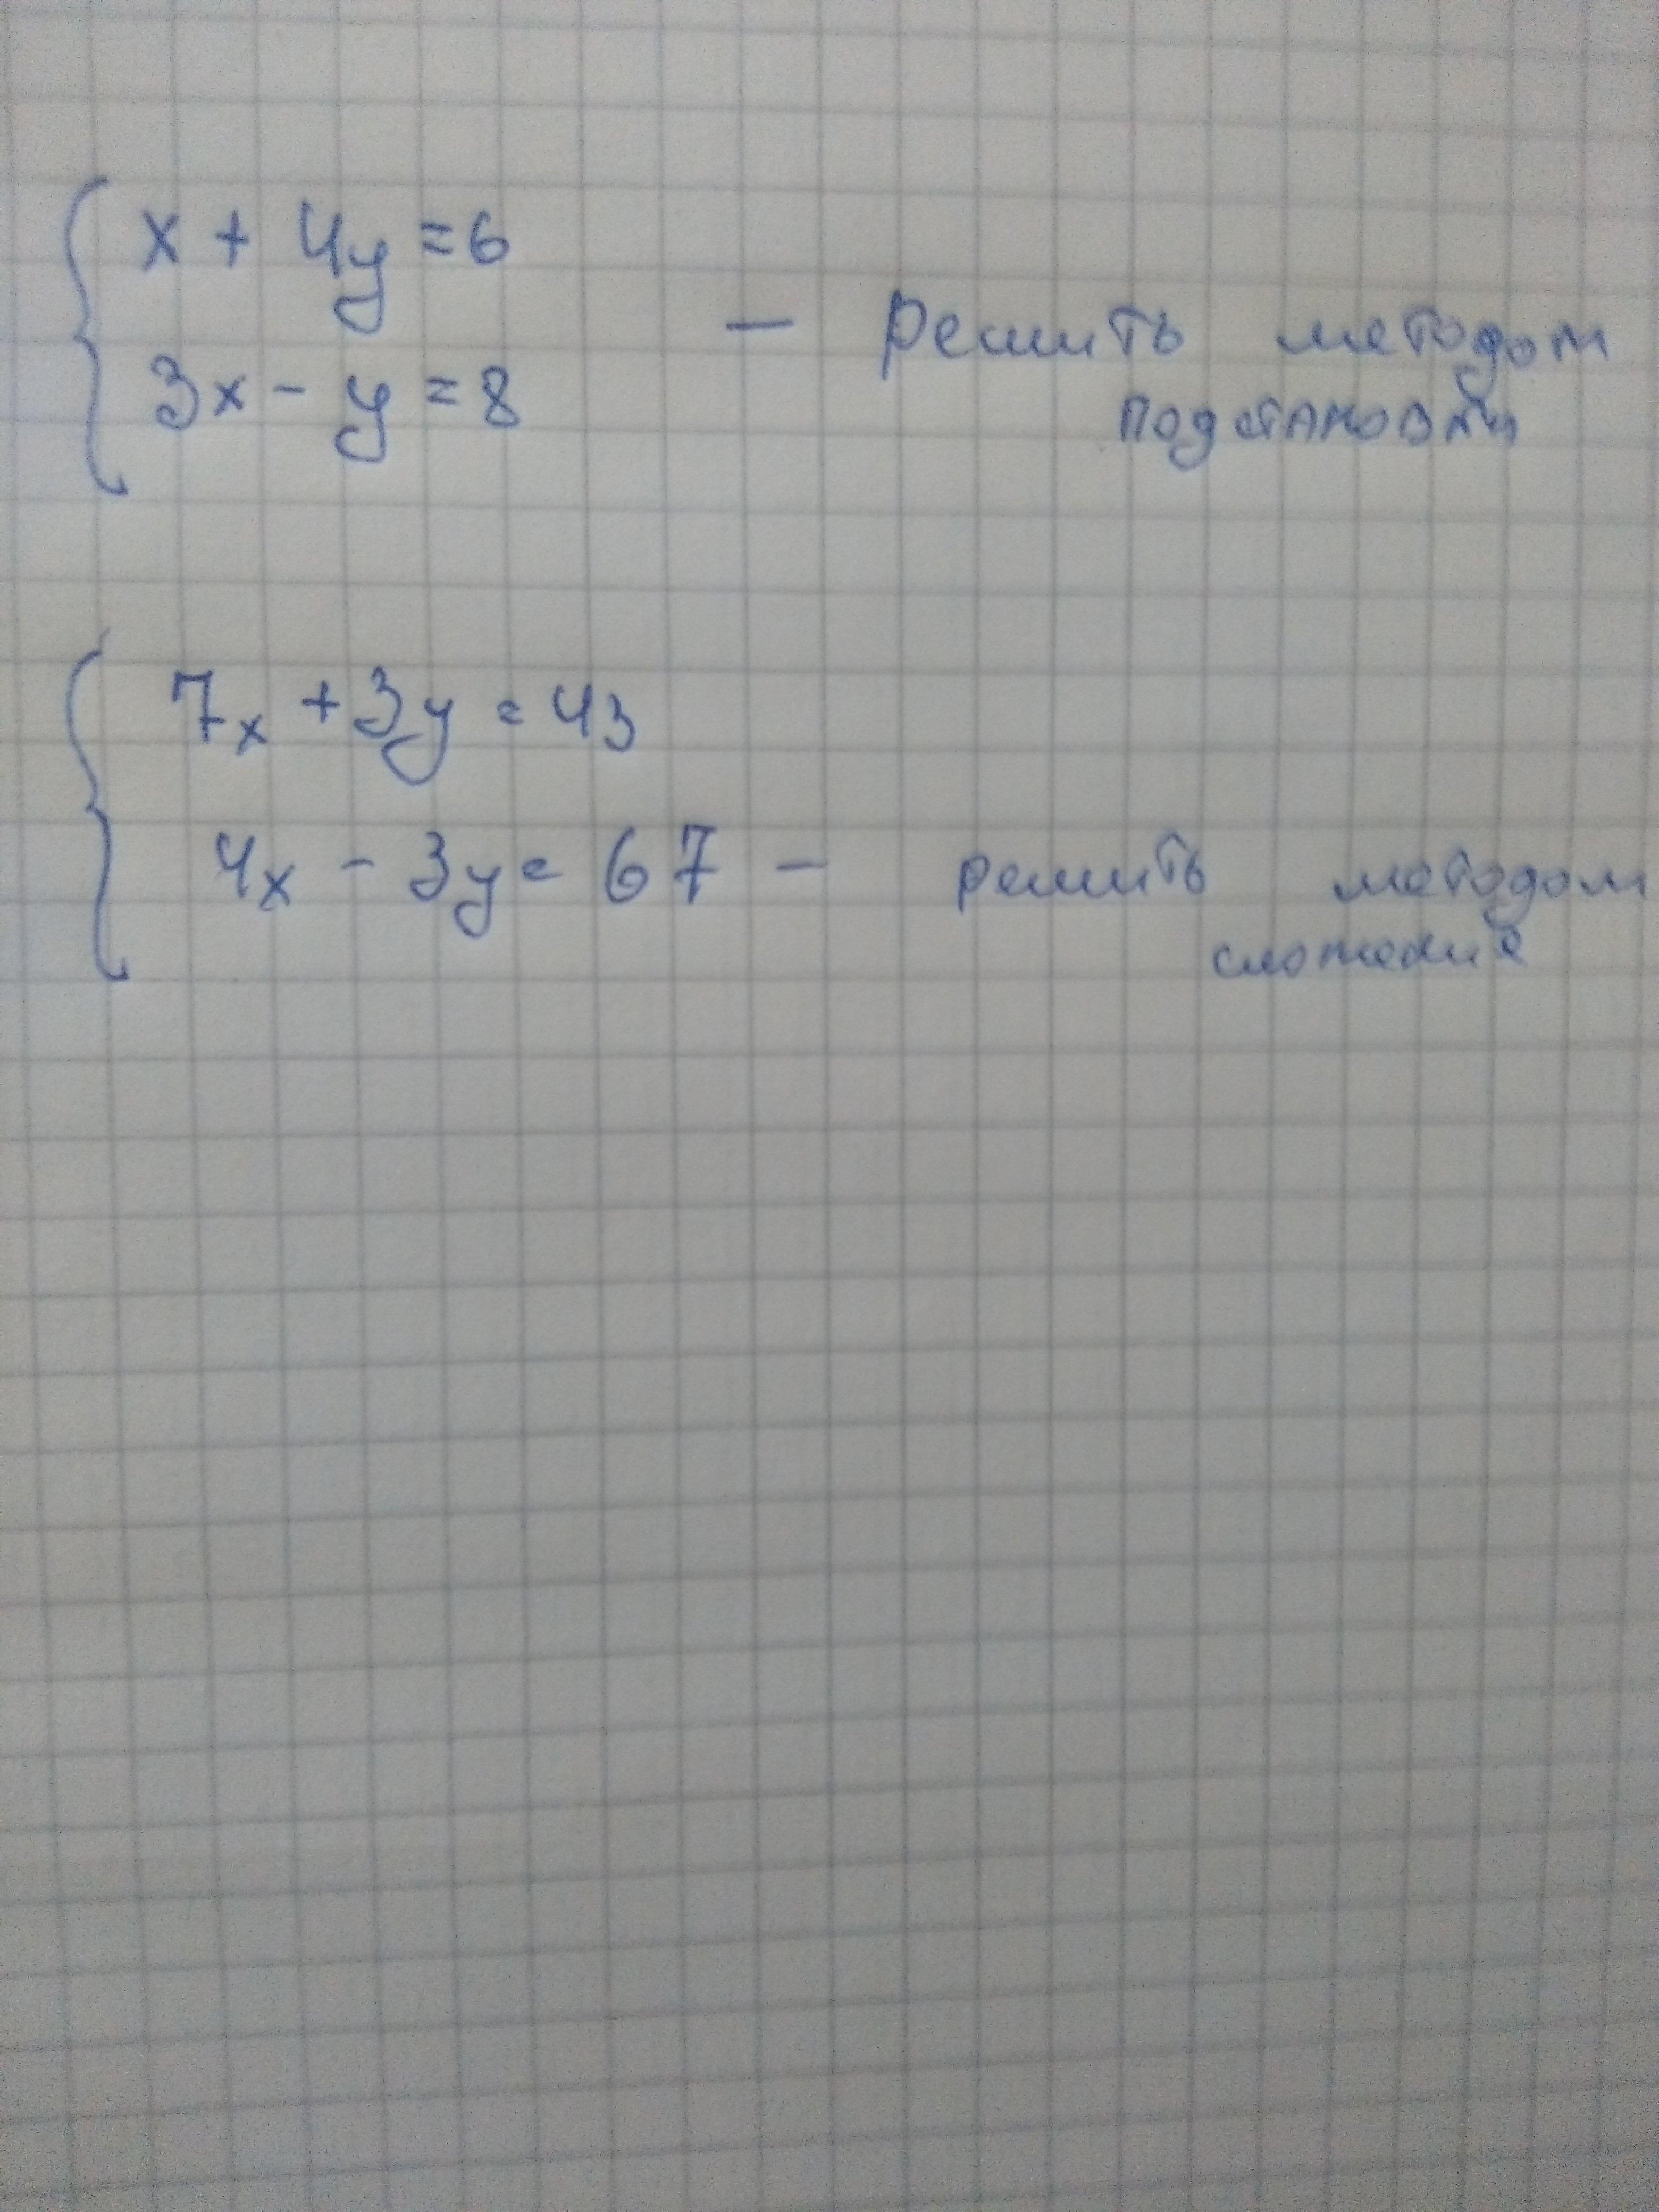 x + 4y = 6
3x - y = 8
— Решить методом
подстановки
7x + 3y = 43
4x - 3y = 67 — решить методом
сложения